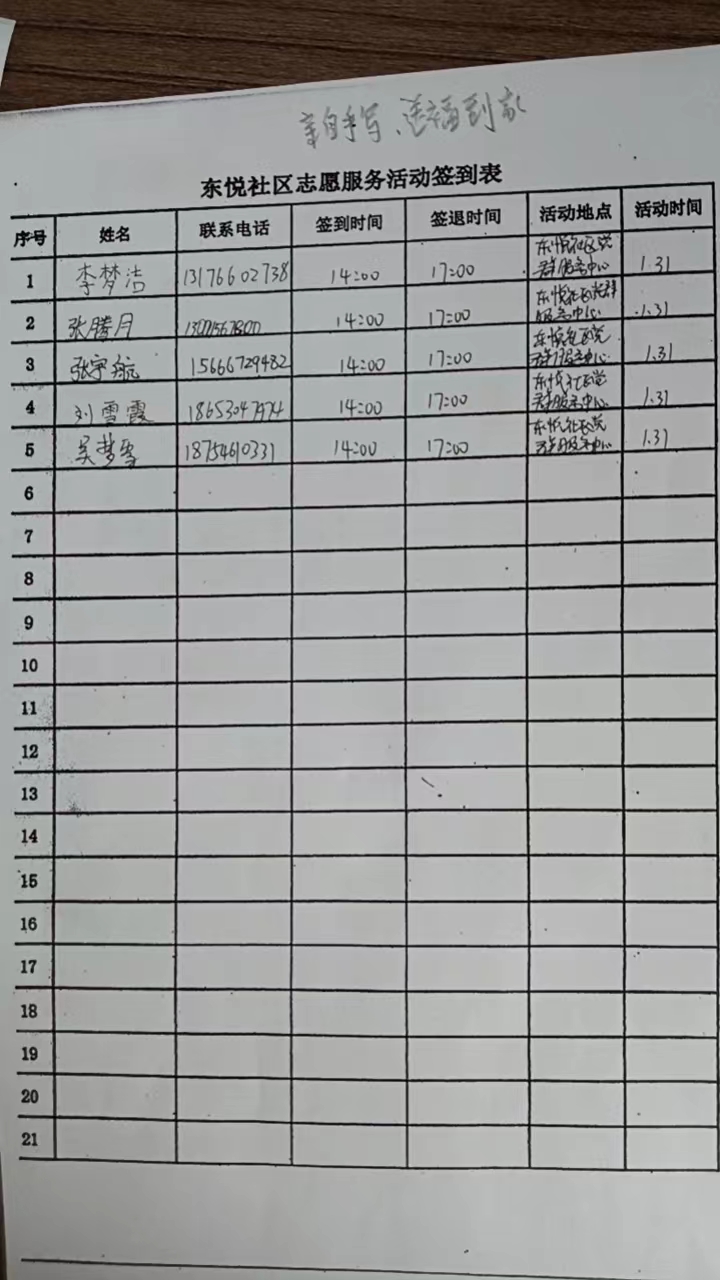 亲自手写、送福到家
东悦社区志愿服务活动签到表
序号 姓名 联系电话 签到时间 签退时间 活动地点 活动时间
1 李梦洁 13176602738 14:00 17:00 东悦社区党群服务中心 1.31
2 张腾月 14:00 17:00 东悦社区党群服务中心 1.31
3 张宇航 15666729482 14:00 17:00 东悦社区党群服务中心 1.31
4 刘雪霞 14:00 17:00 东悦社区党群服务中心 1.31
5 吴梦雪 18754610331 14:00 17:00 东悦社区党群服务中心 1.31
6
7
8
9
10
11
12
13
14
15
16
17
18
19
20
21